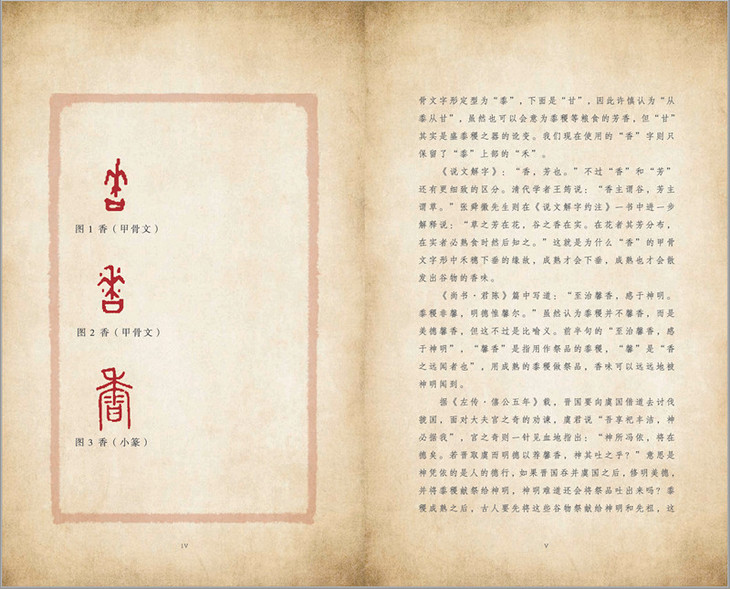 图 1 香（甲骨文）
图 2 香（甲骨文）
图 3 香（小篆）
IV
骨文字形定型为“黍”，下面是“甘”，因此许慎认为“从
黍从甘”，虽然也可以会意为黍稷等粮食的芳香，但“甘”
其实是盛黍稷之器的讹变。我们现在使用的“香”字则只
保留了“黍”上部的“禾”。
《说文解字》：“香，芳也。”不过“香”和“芳”
还有更细致的区分。清代学者王筠说：“香主谓谷，芳主
谓草。”张舜徽先生则在《说文解字约注》一书中进一步
解释说：“草之芳在花，谷之香在实。在花者其芳分布，
在实者必熟食时然后知之。”这就是为什么“香”的甲骨
文字形中禾穗下垂的缘故，成熟才会下垂，成熟也才会散
发出谷物的香味。
《尚书·君陈》篇中写道：“至治馨香，感于神明。
黍稷非馨，明德惟馨尔。”虽然认为黍稷并不馨香，而是
美德馨香，但这不过是比喻义。前半句的“至治馨香，感
于神明”，“馨香”是指用作祭品的黍稷，“馨”是“香
之远闻者也”，用成熟的黍稷做祭品，香味可以远远地被
神明闻到。
据《左传·僖公五年》载，晋国要向虞国借道去讨伐
虢国，面对大夫宫之奇的劝谏，虞君说“吾享祀丰洁，神
必据我”，宫之奇则一针见血地指出：“神所冯依，将在
德矣。若晋取虞而明德以荐馨香，神其吐之乎？”意思是
神凭依的是人的德行，如果晋国吞并虞国之后，修明美德，
并将黍稷献祭给神明，神明难道还会将祭品吐出来吗？黍
稷成熟之后，古人要先将这些谷物祭献给神明和先祖，这
V